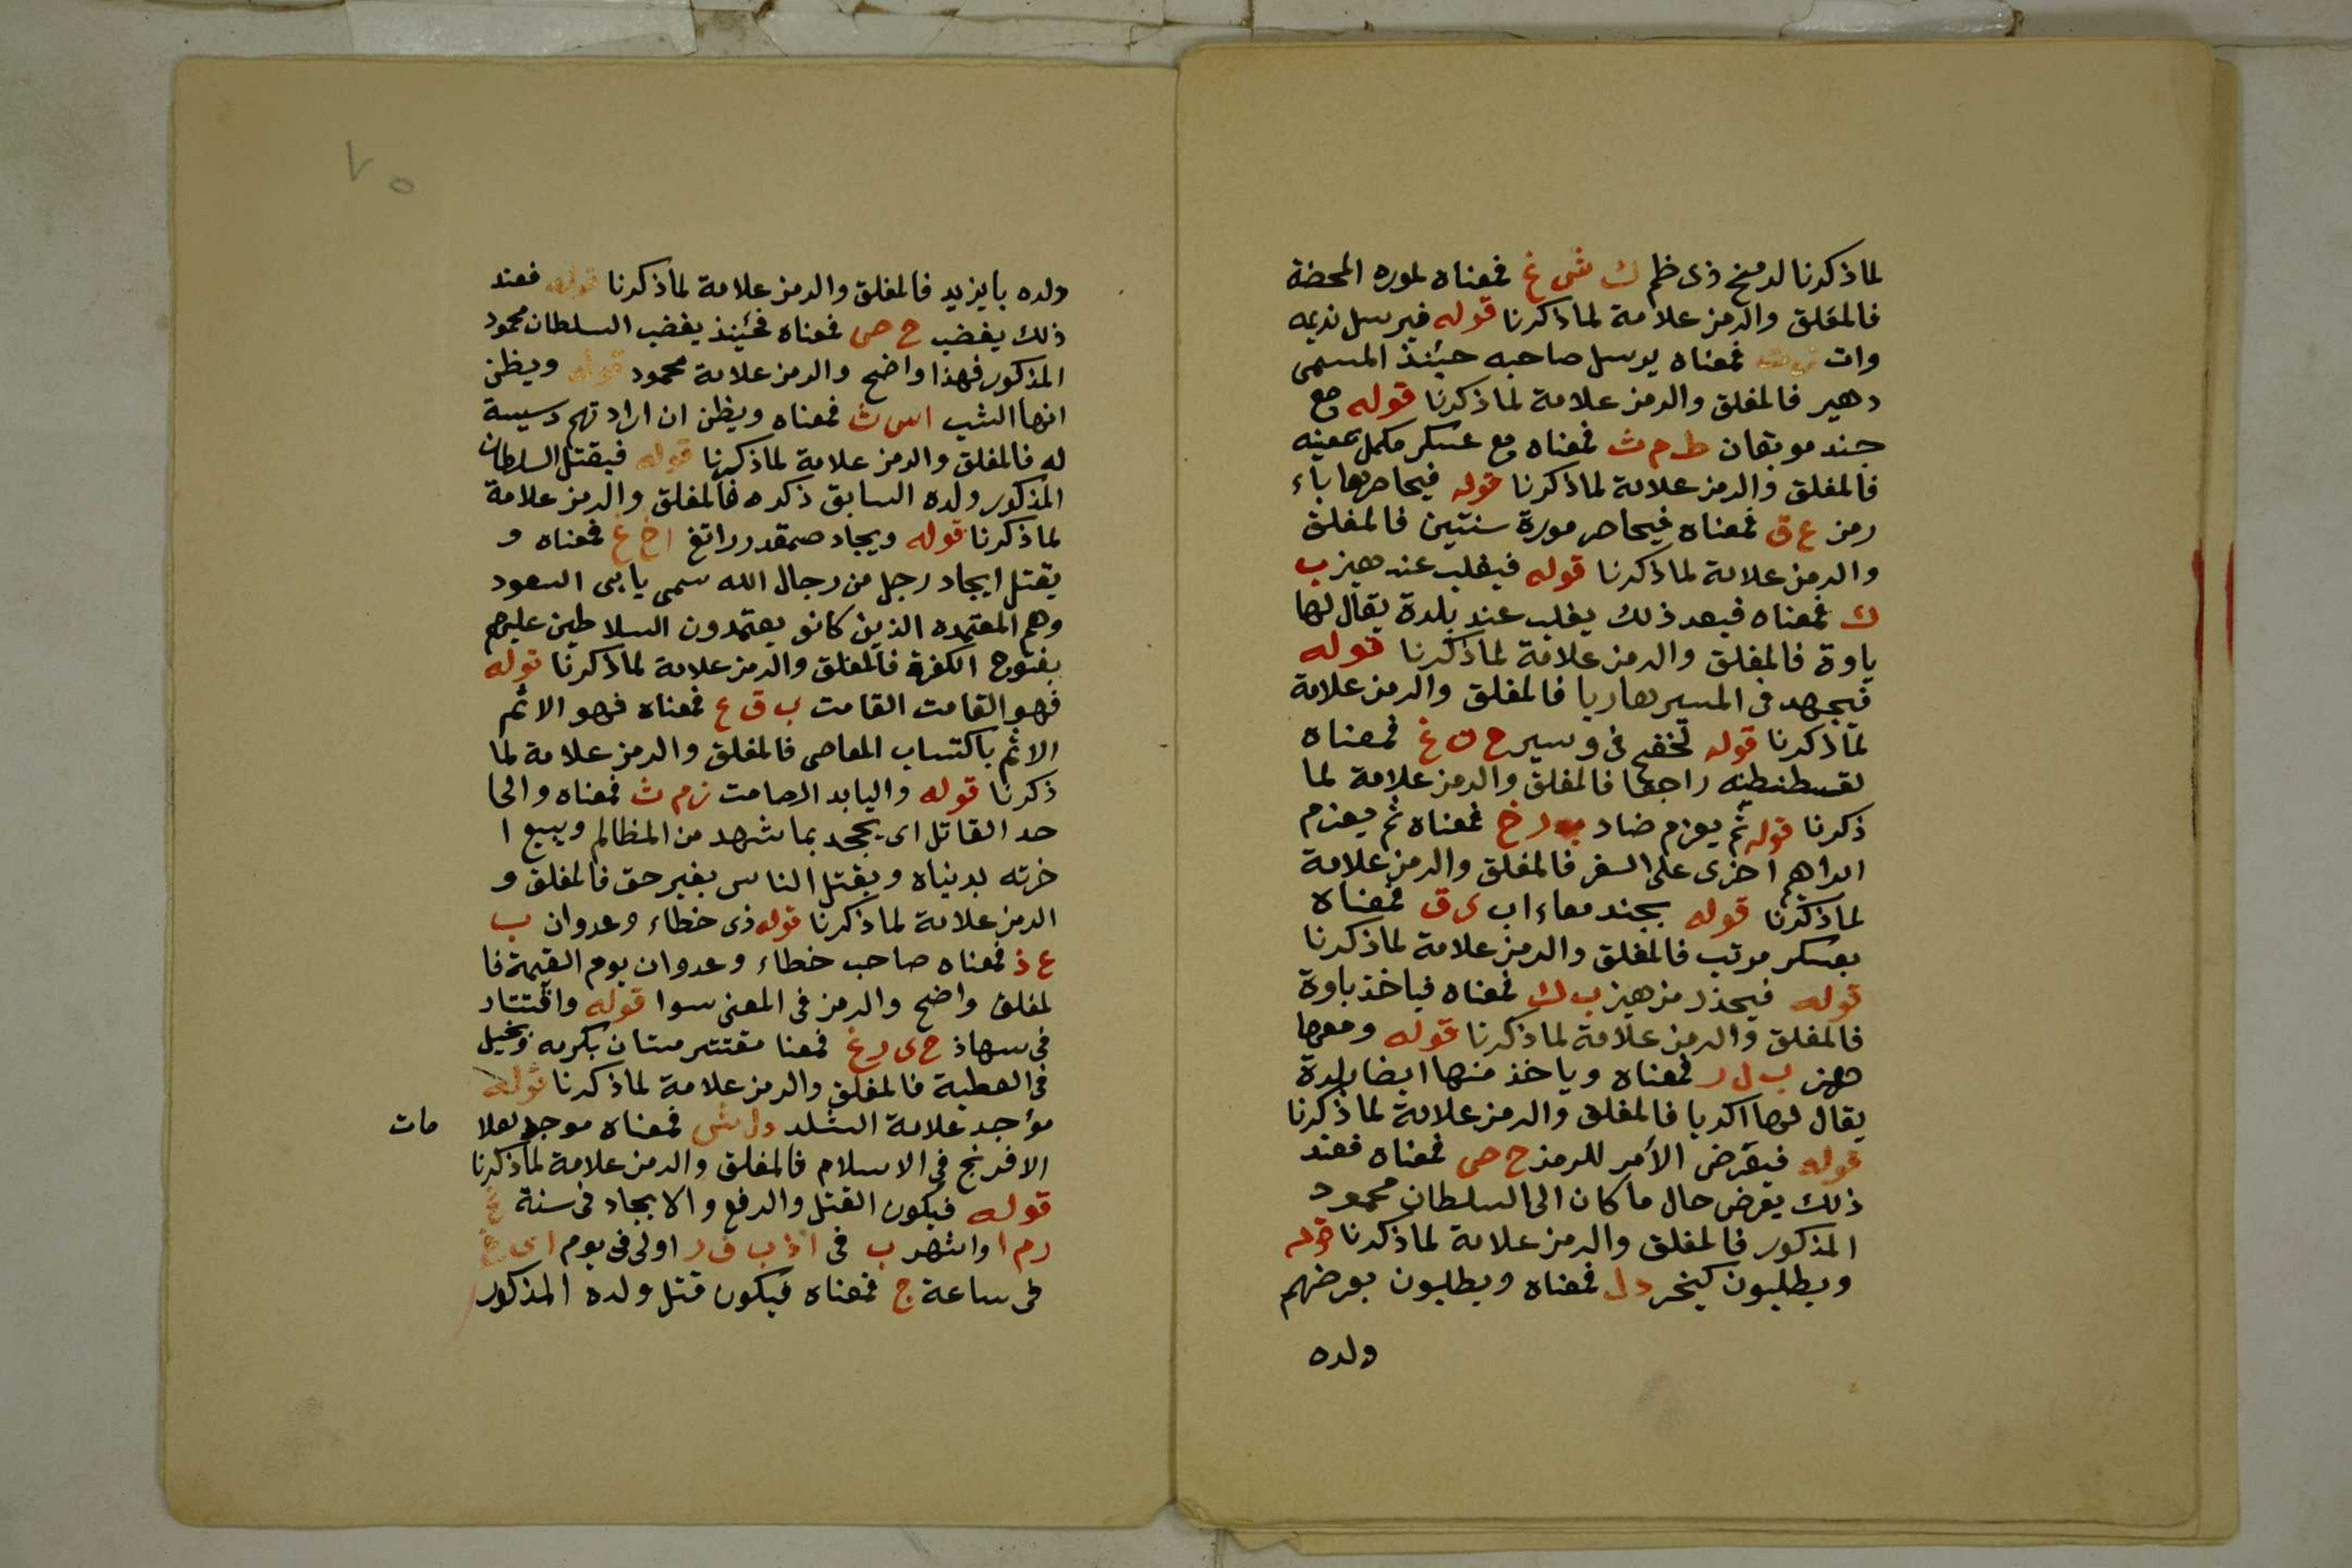 لما ذكرنا لدمنخ ذى ظم ك ش غ فمعناه لموره المحضة
فالمغلق والرمز علامة لما ذكرنا قوله فيرسل نديمه
وات فمعناه يرسل صاحبه حينئذ المسمى
دهير فالمغلق والرمز علامة لما ذكرنا قوله مع
جند موبقان ط م ث فمعناه مع عسكر مكمل بمعينه
فالمغلق والرمز علامة لما ذكرنا قوله فيحاصرها باء
رمز ع ق فمعناه فيحاصر مورة سنتين فالمغلق
والرمز علامة لما ذكرنا قوله فيغلب عند هيز ب
ك فمعناه فبعد ذلك يغلب عند بلدة يقال لها
ياوة فالمغلق والرمز علامة لما ذكرنا قوله
فيجهد فى المسير هاربا فالمغلق والرمز علامة
لما ذكرنا قوله فى وسير ح ن غ فمعناه
لقسطنطنيه راجعا فالمغلق والرمز علامة لما
ذكرنا قوله ثم يعزم ضاد ب ر خ فمعناه ثم يعزم
ابراهم اخرى على السفر فالمغلق والرمز علامة
لما ذكرنا قوله بجند معاء اب ى ق فمعناه
بعسكر مرتب فالمغلق والرمز علامة لما ذكرنا
قوله فيحذر مز هيز ب ك فمعناه فياخذ ياوة
فالمغلق والرمز علامة لما ذكرنا قوله ومعها
هعز ب ل ر فمعناه وياخذ منها ايضا بلدة
يقال لها اكديا فالمغلق والرمز علامة لما ذكرنا
قوله فيعرض الأمر للرمز ح ص فمعناه فعند
ذلك يعرض حال ما كان الى السلطان محمود
المذكور فالمغلق والرمز علامة لما ذكرنا قوله
ويطلبون كينحر د ل فمعناه ويطلبون بعرضهم
ولده
ولده بايزيد فالمغلق والرمز علامة لما ذكرنا قوله فعند
ذلك يغضب ح ص فمعناه فحينئذ يغضب السلطان محمود
المذكور فهذا واضح والرمز علامة محمود قوله ويظن
انها الشب اس ث فمعناه ويظن ان ارادتهم دسيسة
له فالمغلق والرمز علامة لما ذكرنا قوله فيقتل السلطان
المذكور ولده السابق ذكره فالمغلق والرمز علامة
لما ذكرنا قوله ويجاد صمقدر راتغ اخ غ فمعناه و
يقتل ايجاد رجل من رجال الله سمى يابى السعود
وهم المعتمده الذين كانو يعتمدون السلاطين عليهم
بفتوح الكفرة فالمغلق والرمز علامة لما ذكرنا قوله
فهو القامت القامت ب ق ع فمعناه فهو الاثم
الاثم باكتساب المعاصى فالمغلق والرمز علامة لما
ذكرنا قوله واليابد الصامت ن م ث فمعناه والجا
حد القاتل اى يجحد بما شهد من المظالم ويبيع ا
خرته بدنياه ويقتل الناس بغير حق فالمغلق و
الرمز علامة لما ذكرنا قوله ذى خطاء وعدوان ب
ع ذ فمعناه صاحب خطاء وعدوان يوم القيمة فا
لمغلق واضح والرمز فى المعنى سوا قوله واقتتاد
فى سهاذ ح ى ر غ فمعنا مقتتر متان بكرمه وبخيل
فى العطية فالمغلق والرمز علامة لما ذكرنا قوله
مؤجد علامة الشلد د ل ش فمعناه موجد لعلا
مات
الافرنج فى الاسلام فالمغلق والرمز علامة لما ذكرنا
قوله فيكون القتل والرفع والايجاد فى سنة غ
ر م ا واشهر ب فى اذ ب ف ر اولى فى يوم
فى ساعة ج فمعناه فيكون قتل ولده المذكور